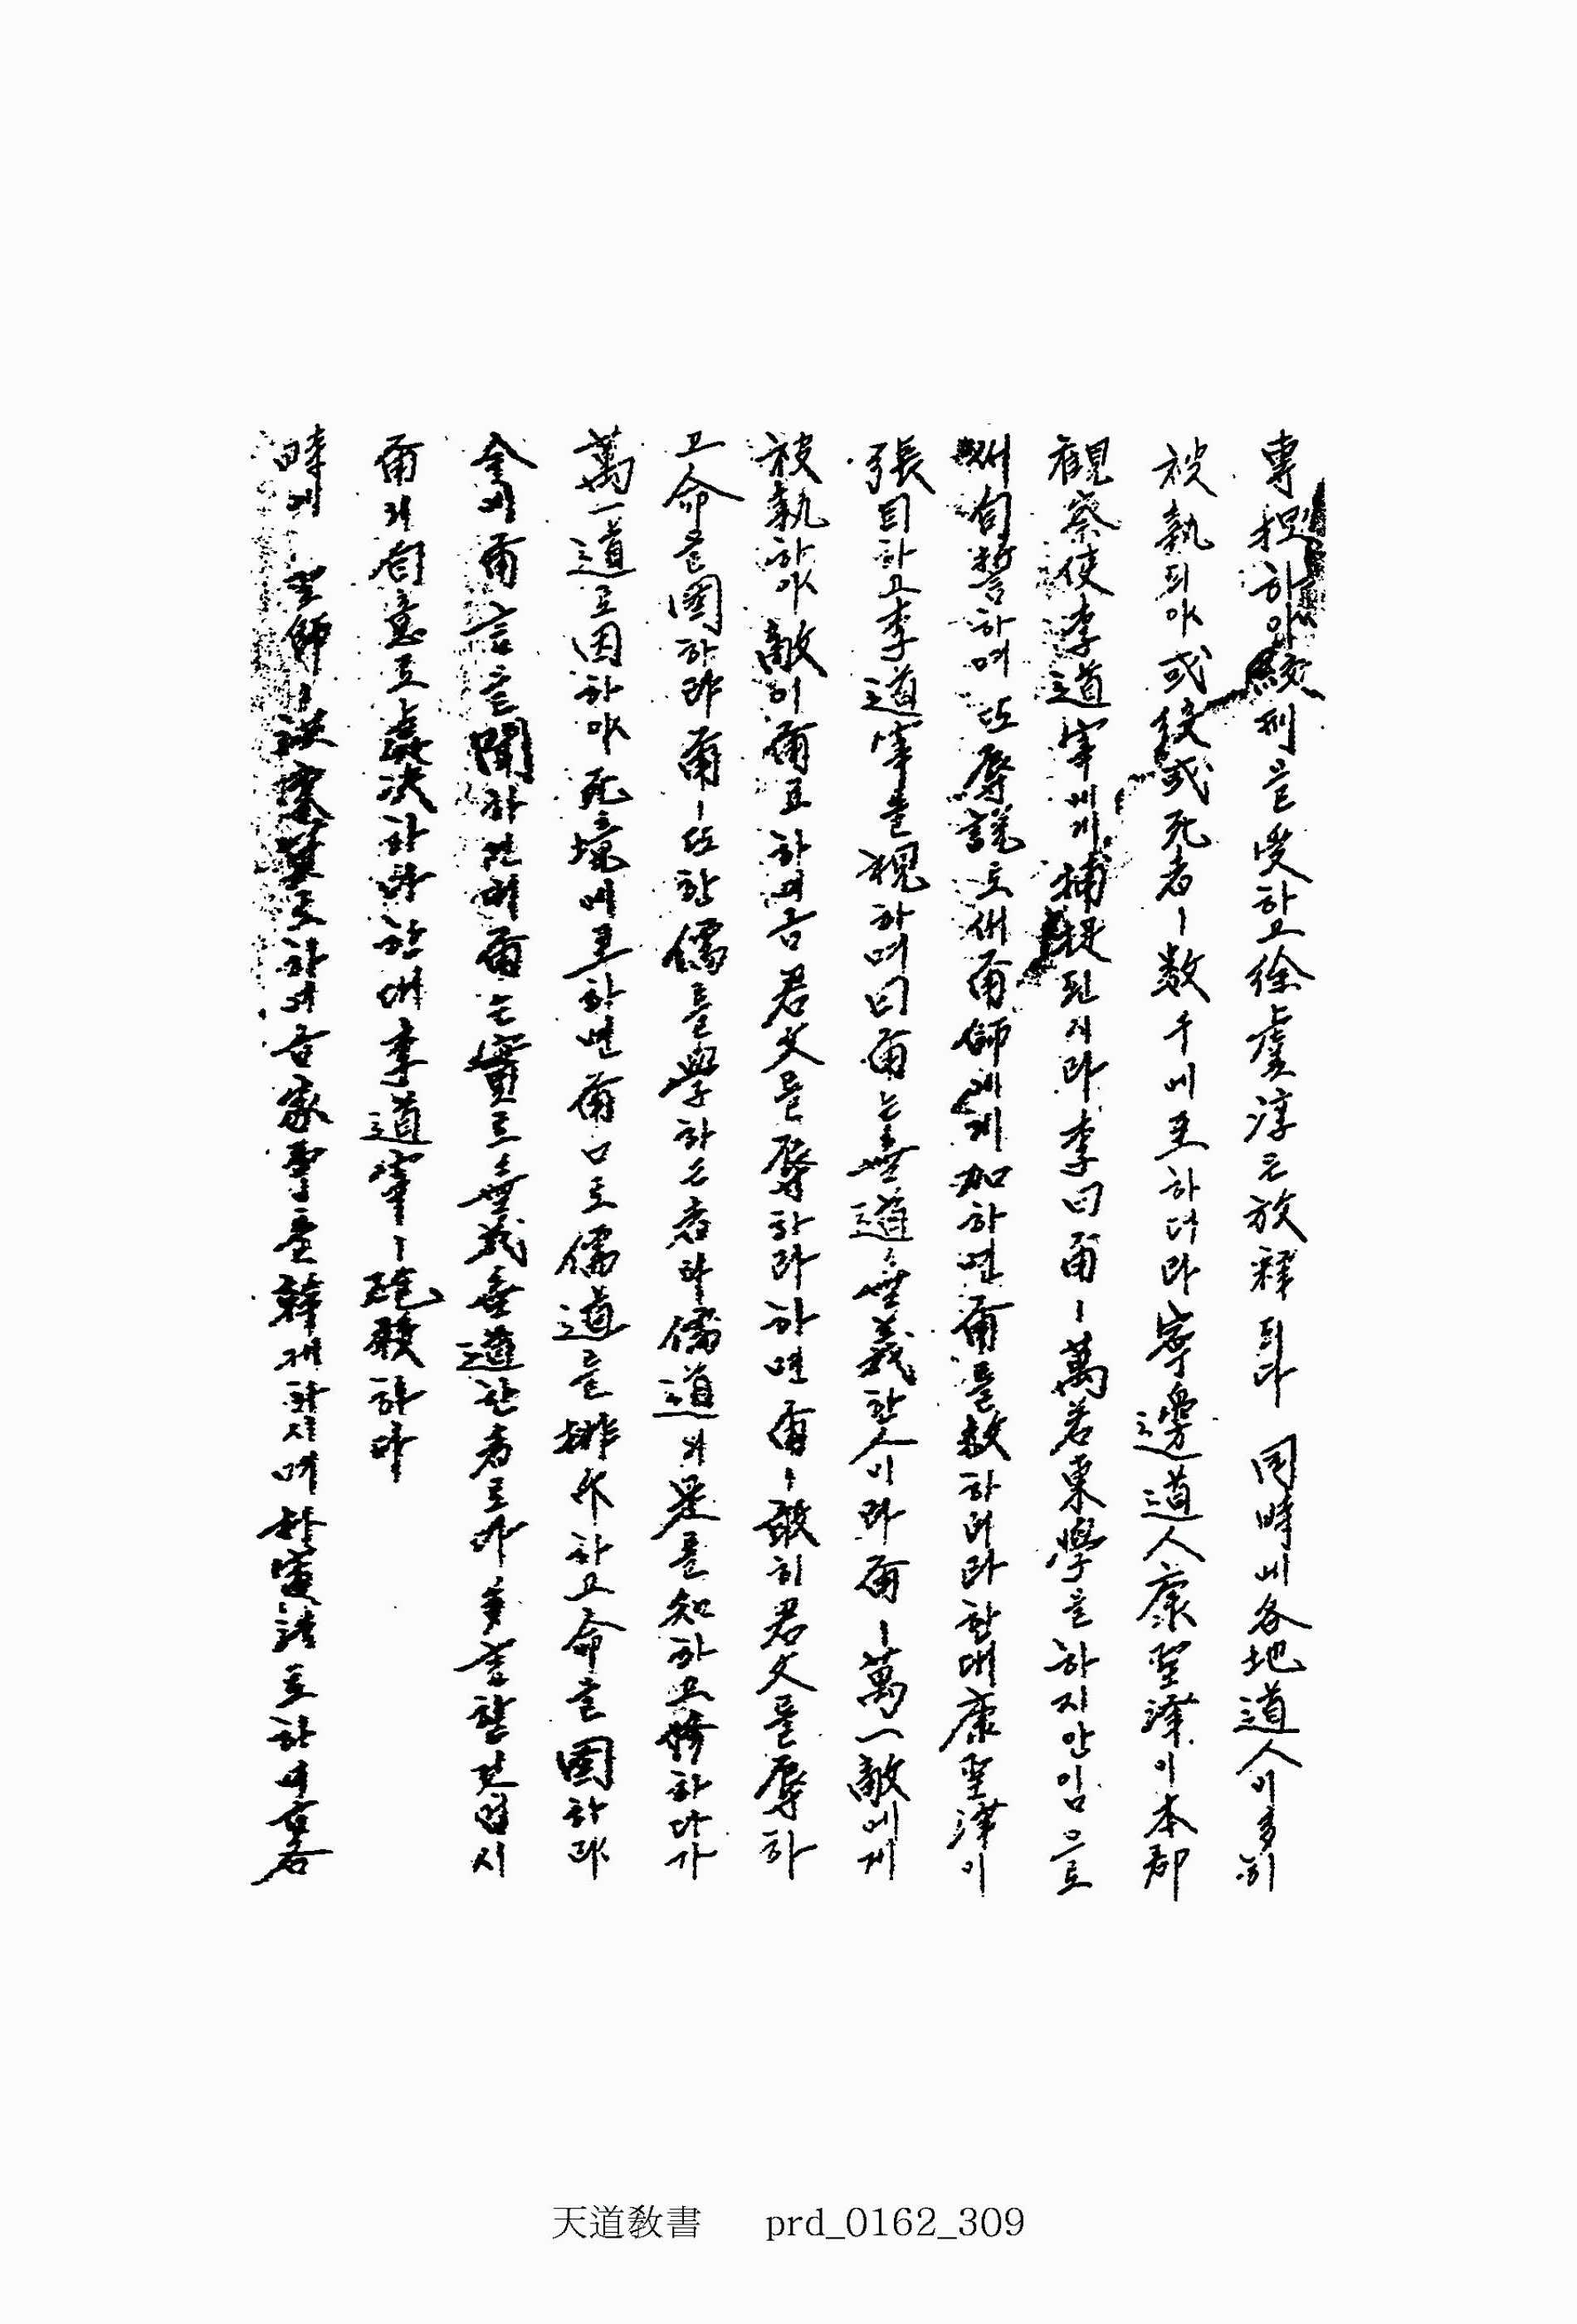 專担하야 絞刑을 受하고 徐虞淳은 放釋되다 同時에 各地道人이 多히
被執되야 或絞或死者ㅣ 数千에 至하더라 寧邊道人康聖澤이 本郡
觀察使李道宰에게 捕捉된지라 李曰 爾ㅣ 萬若東學을 하지안임으로
自誓하며 또 辱説로써 爾師에게 加하면 爾를 放하리라 한대 康聖澤이
張目하고 李道宰를 視하며 曰 爾는 無道無義한 人이라 爾ㅣ 萬一敵에게
被執하야 敵이 爾로 하여금 君父를 辱하라 하면 爾ㅣ 敢히 君父를 辱하
고 命을 圖하랴 爾ㅣ 또한 儒를 學하는 者라 儒道의 是를 知하고 修하다가
萬一道로 因하야 死境에 至하면 爾口로 儒道를 排斥하고 命을 圖하랴
余ㅣ 爾言을 聞하건대 爾는 實로 無義無道한 者로다 多言할 것 업시
爾의 自意로 處決하라 한대 李道宰ㅣ 砲殺하다
時에 聖師ㅣ 하여금 家事를 幹케 하시며 하여